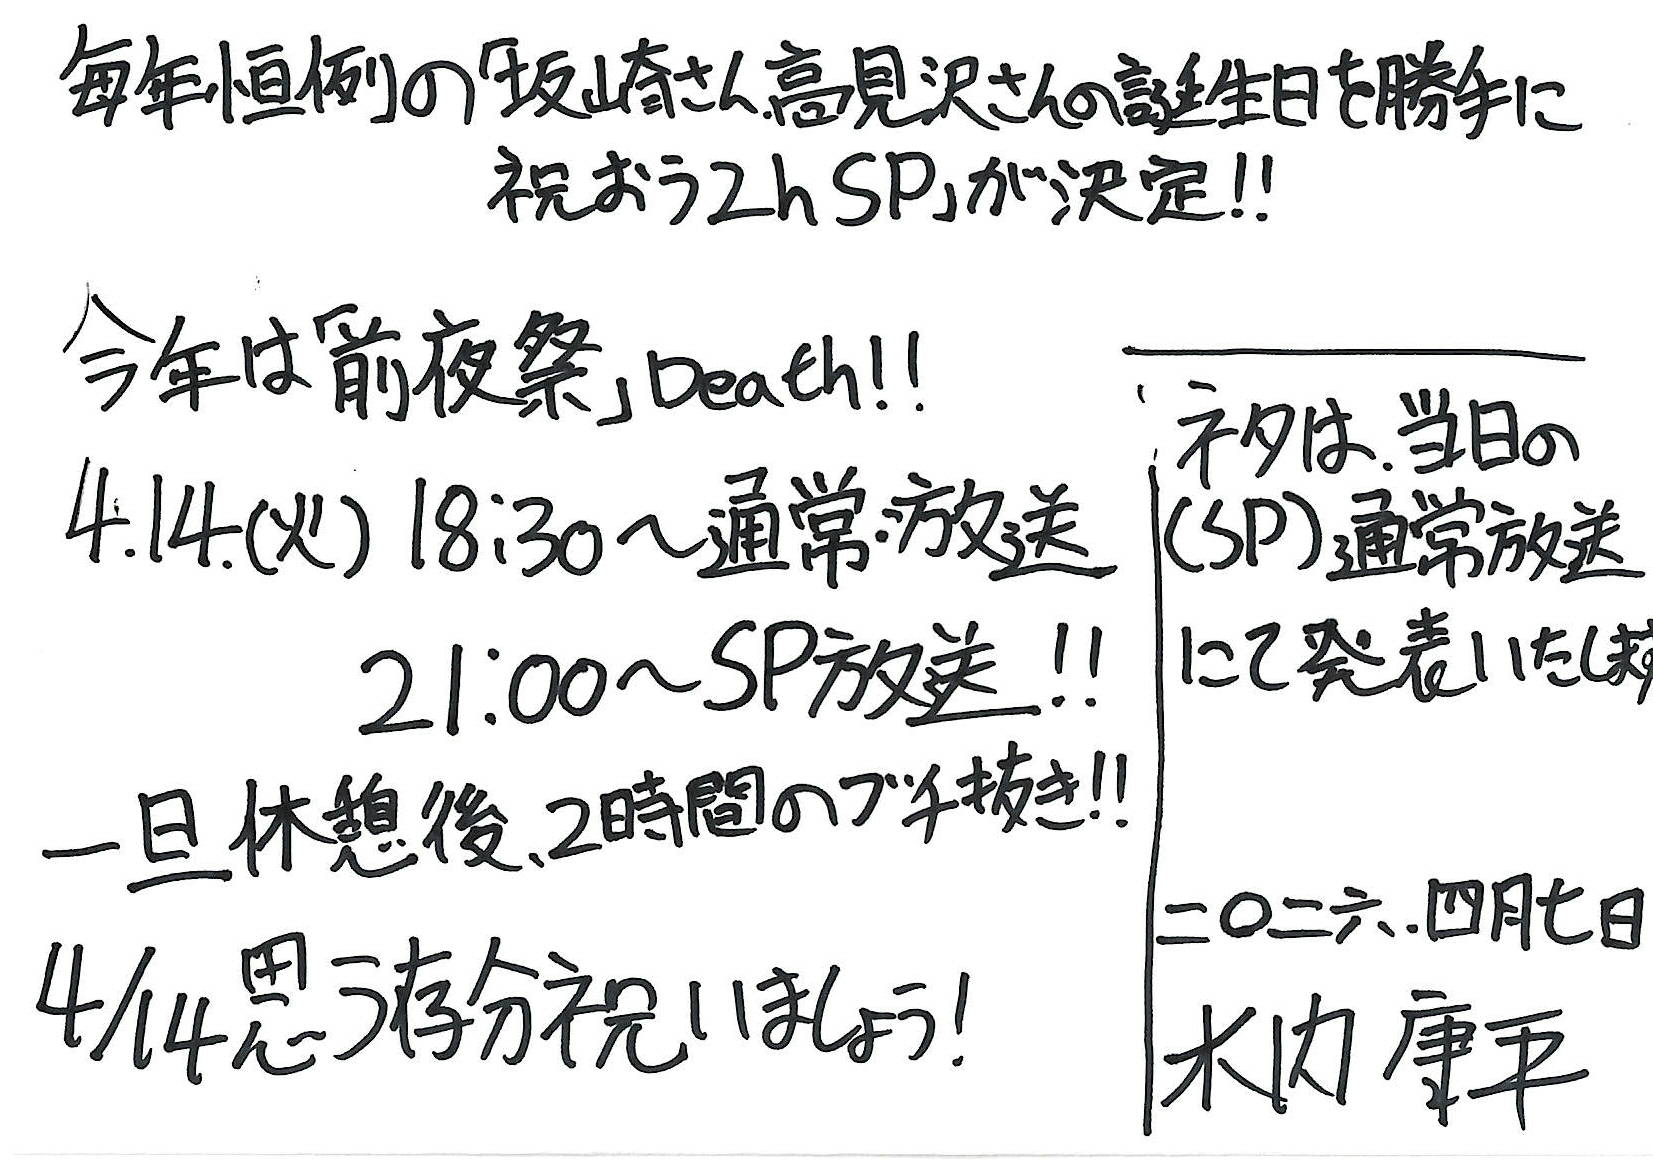 毎年恒例の「坂崎さん、高見沢さんの誕生日を勝手に
祝おう2hSP」が決定!!
今年は「前夜祭」Death!!
4.14.(火) 18:30〜通常放送
21:00〜SP放送!!
一旦休憩後、2時間のブチ抜き!!
4/14思う存分祝いましょう!
ネタは、当日の
(SP)通常放送
にて発表いたします
二〇二六.四月七日
木内 康平